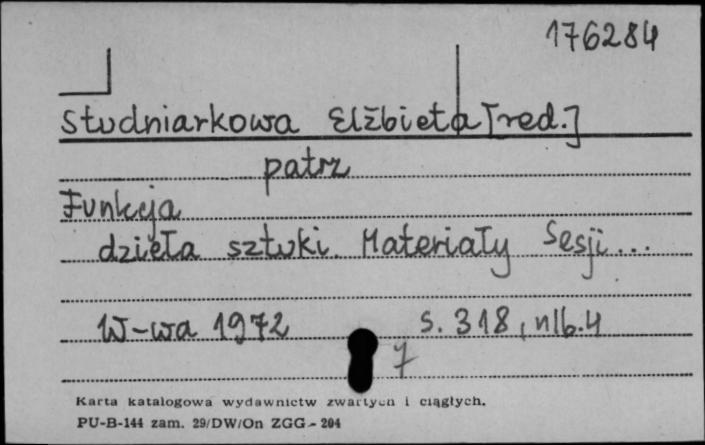 176284
Studniarkowa Elżbieta [red.]
patrz
Funkcja
dzieła sztuki. Materiały Sesji...
W-wa 1972 s. 318, nlb. 4
7
Karta katalogowa wydawnictw zwartych i ciągłych.
PU-B-144 zam. 29/DW/On ZGG - 204